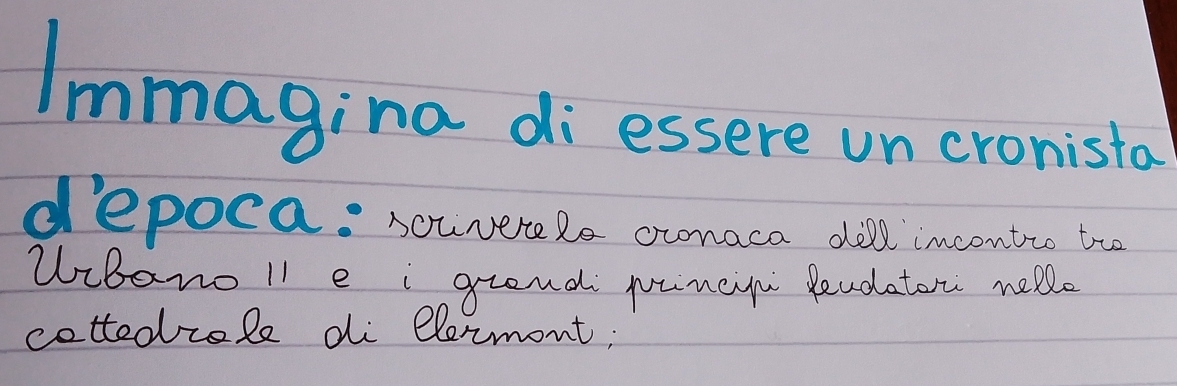 Immagina di essere un cronista
d'epoca: scrivere la cronaca dell'incontro tra
Urbano II e i grandi principi feudatari nella
cattedrale di Clermont;